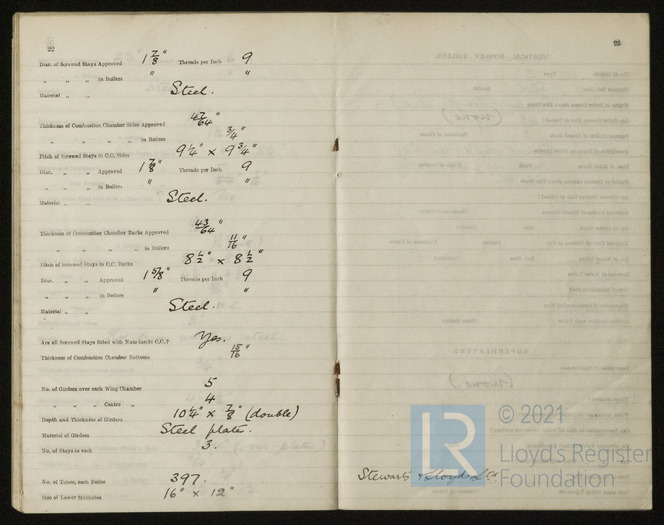 22
Diar. of Screwed Stays Approved 1 7/8" Threads per Inch 9
" " " in Boilers " "
Material " " Steel.
Thickness of Combustion Chamber Sides Approved 47/64"
" " " " in Boilers 3/4"
Pitch of Screwed Stays in C.C. Sides 9 1/4" x 9 3/4"
Diar. " " Approved 1 7/8" Threads per Inch 9
" " " in Boilers " "
Material " " Steel.
Thickness of Combustion Chamber Backs Approved 43/64"
" " " " in Boilers 11/16"
Pitch of Screwed Stays in C.C. Backs 8 1/2" x 8 1/2"
Diar. " " Approved 1 5/8" Threads per Inch 9
" " " in Boilers " "
Material " " Steel.
Are all Screwed Stays fitted with Nuts inside C.C.? Yes.
Thickness of Combustion Chamber Bottoms 15/16"
No. of Girders over each Wing Chamber 5
" " " Centre " 4
Depth and Thickness of Girders 10 1/4" x 7/8" (double)
Material of Girders Steel plate.
No. of Stays in each 3.
No. of Tubes, each Boiler 397.
Size of Lower Manholes 16" x 12"
23
Stewarts & Lloyds Ltd.
LR
© 2021
Lloyd's Register
Foundation